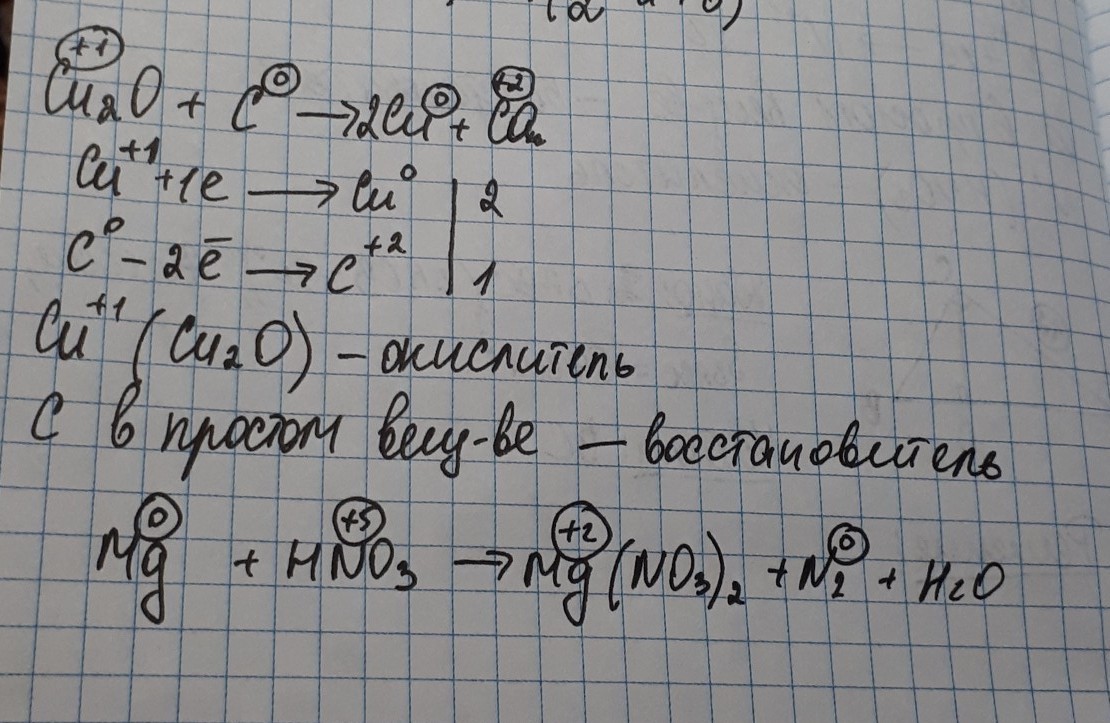 +1 0 0 +2
Cu₂O + C → 2Cu + CO
Cu⁺¹ +1e → Cu⁰ | 2
C⁰ – 2e̅ → C⁺² | 1
Cu⁺¹ (Cu₂O) – окислитель
C в простом вещ-ве – восстановитель
0 +5 +2 0
Mg + HNO₃ → Mg(NO₃)₂ + N₂ + H₂O